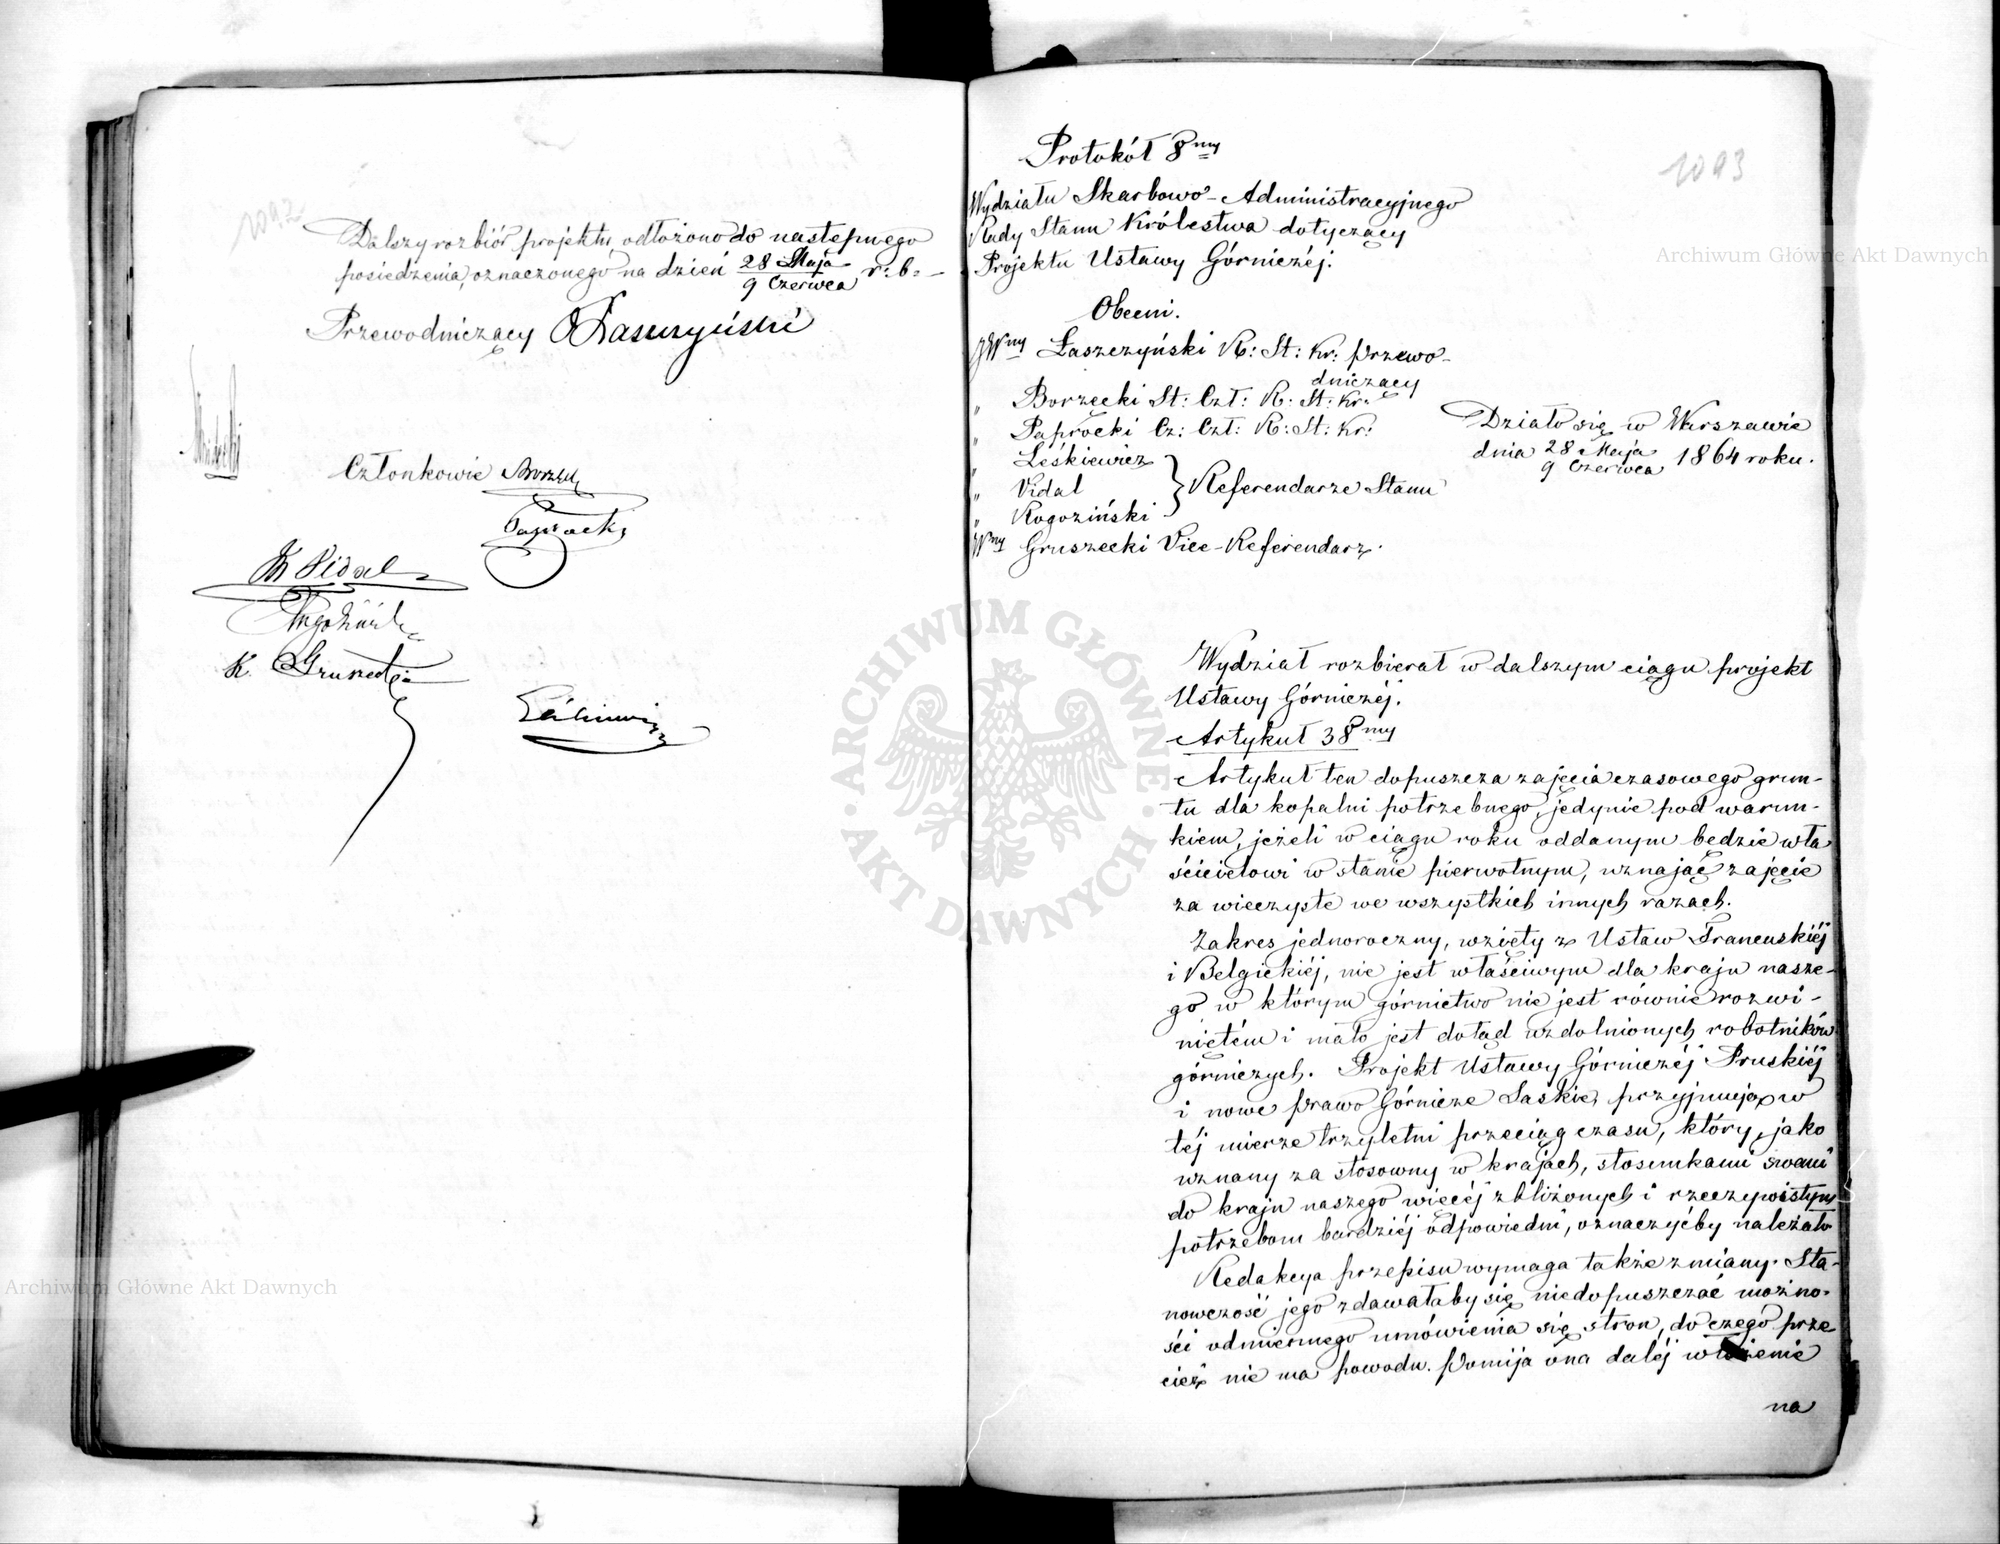 1092
Dalszy rozbiór projektu, odłożono do następnego
posiedzenia, oznaczonego na dzień 28 Maja / 9 Czerwca r: b: –
Przewodniczący Łaszczyński
Członkowie Borzęcki
Paprocki
Vidal
Rogoziński
K. Gruszecki
Leśkiewicz
1093
Protokół 8my
Wydziału Skarbowo-Administracyjnego
Rady Stanu Królestwa dotyczący
Projektu Ustawy Górniczéj.
Obecni.
JWny Łaszczyński R: St: Kr: Przewo-
dniczący
„ Borzęcki St: Czł: R: St: Kr:
„ Paprocki Cz: Czł: R: St: Kr:
„ Leśkiewicz
„ Vidal } Referendarze Stanu
„ Rogoziński
Wny Gruszecki Vice-Referendarz.
Działo się w Warszawie
dnia 28 Maja / 9 Czerwca 1864 roku.
Wydział rozbierał w dalszym ciągu projekt
Ustawy Górniczéj.
Artykuł 38my
Artykuł ten dopuszcza zajęcia czasowego grun-
tu dla kopalni potrzebnego, jedynie pod warun-
kiem, jeżeli w ciągu roku oddanym będzie wła
ścicielowi w stanie pierwotnym, uznając zajęcie
za wieczyste we wszystkich innych razach.
Zakres jednoroczny, wzięty z Ustaw Francuskiéj
i Belgickiéj, nie jest właściwym dla kraju nasze-
go w którym górnictwo nie jest równie rozwi-
niętém i mało jest dotąd uzdolnionych robotników
górniczych. Projekt Ustawy Górniczéj Pruskiéj
i nowe prawo Górnicze Saskie, przyjmują w
téj mierze trzyletni przeciąg czasu, który, jako
uznany za stosowny w krajach, stosunkami swemi
do kraju naszego więcéj zbliżonych i rzeczywistym
potrzebom bardziéj odpowiedni, oznaczyćby należało
Redakcya przepisu wymaga także zmiany. Sta-
nowczość jego zdawałaby się niedopuszczać możno-
ści odmiennego umówienia się stron, do czego prze
cież nie ma powodu. Pomija ona daléj włożenie
na
ARCHIWUM GŁÓWNE AKT DAWNYCH
Archiwum Główne Akt Dawnych
Archiwum Główne Akt Dawnych